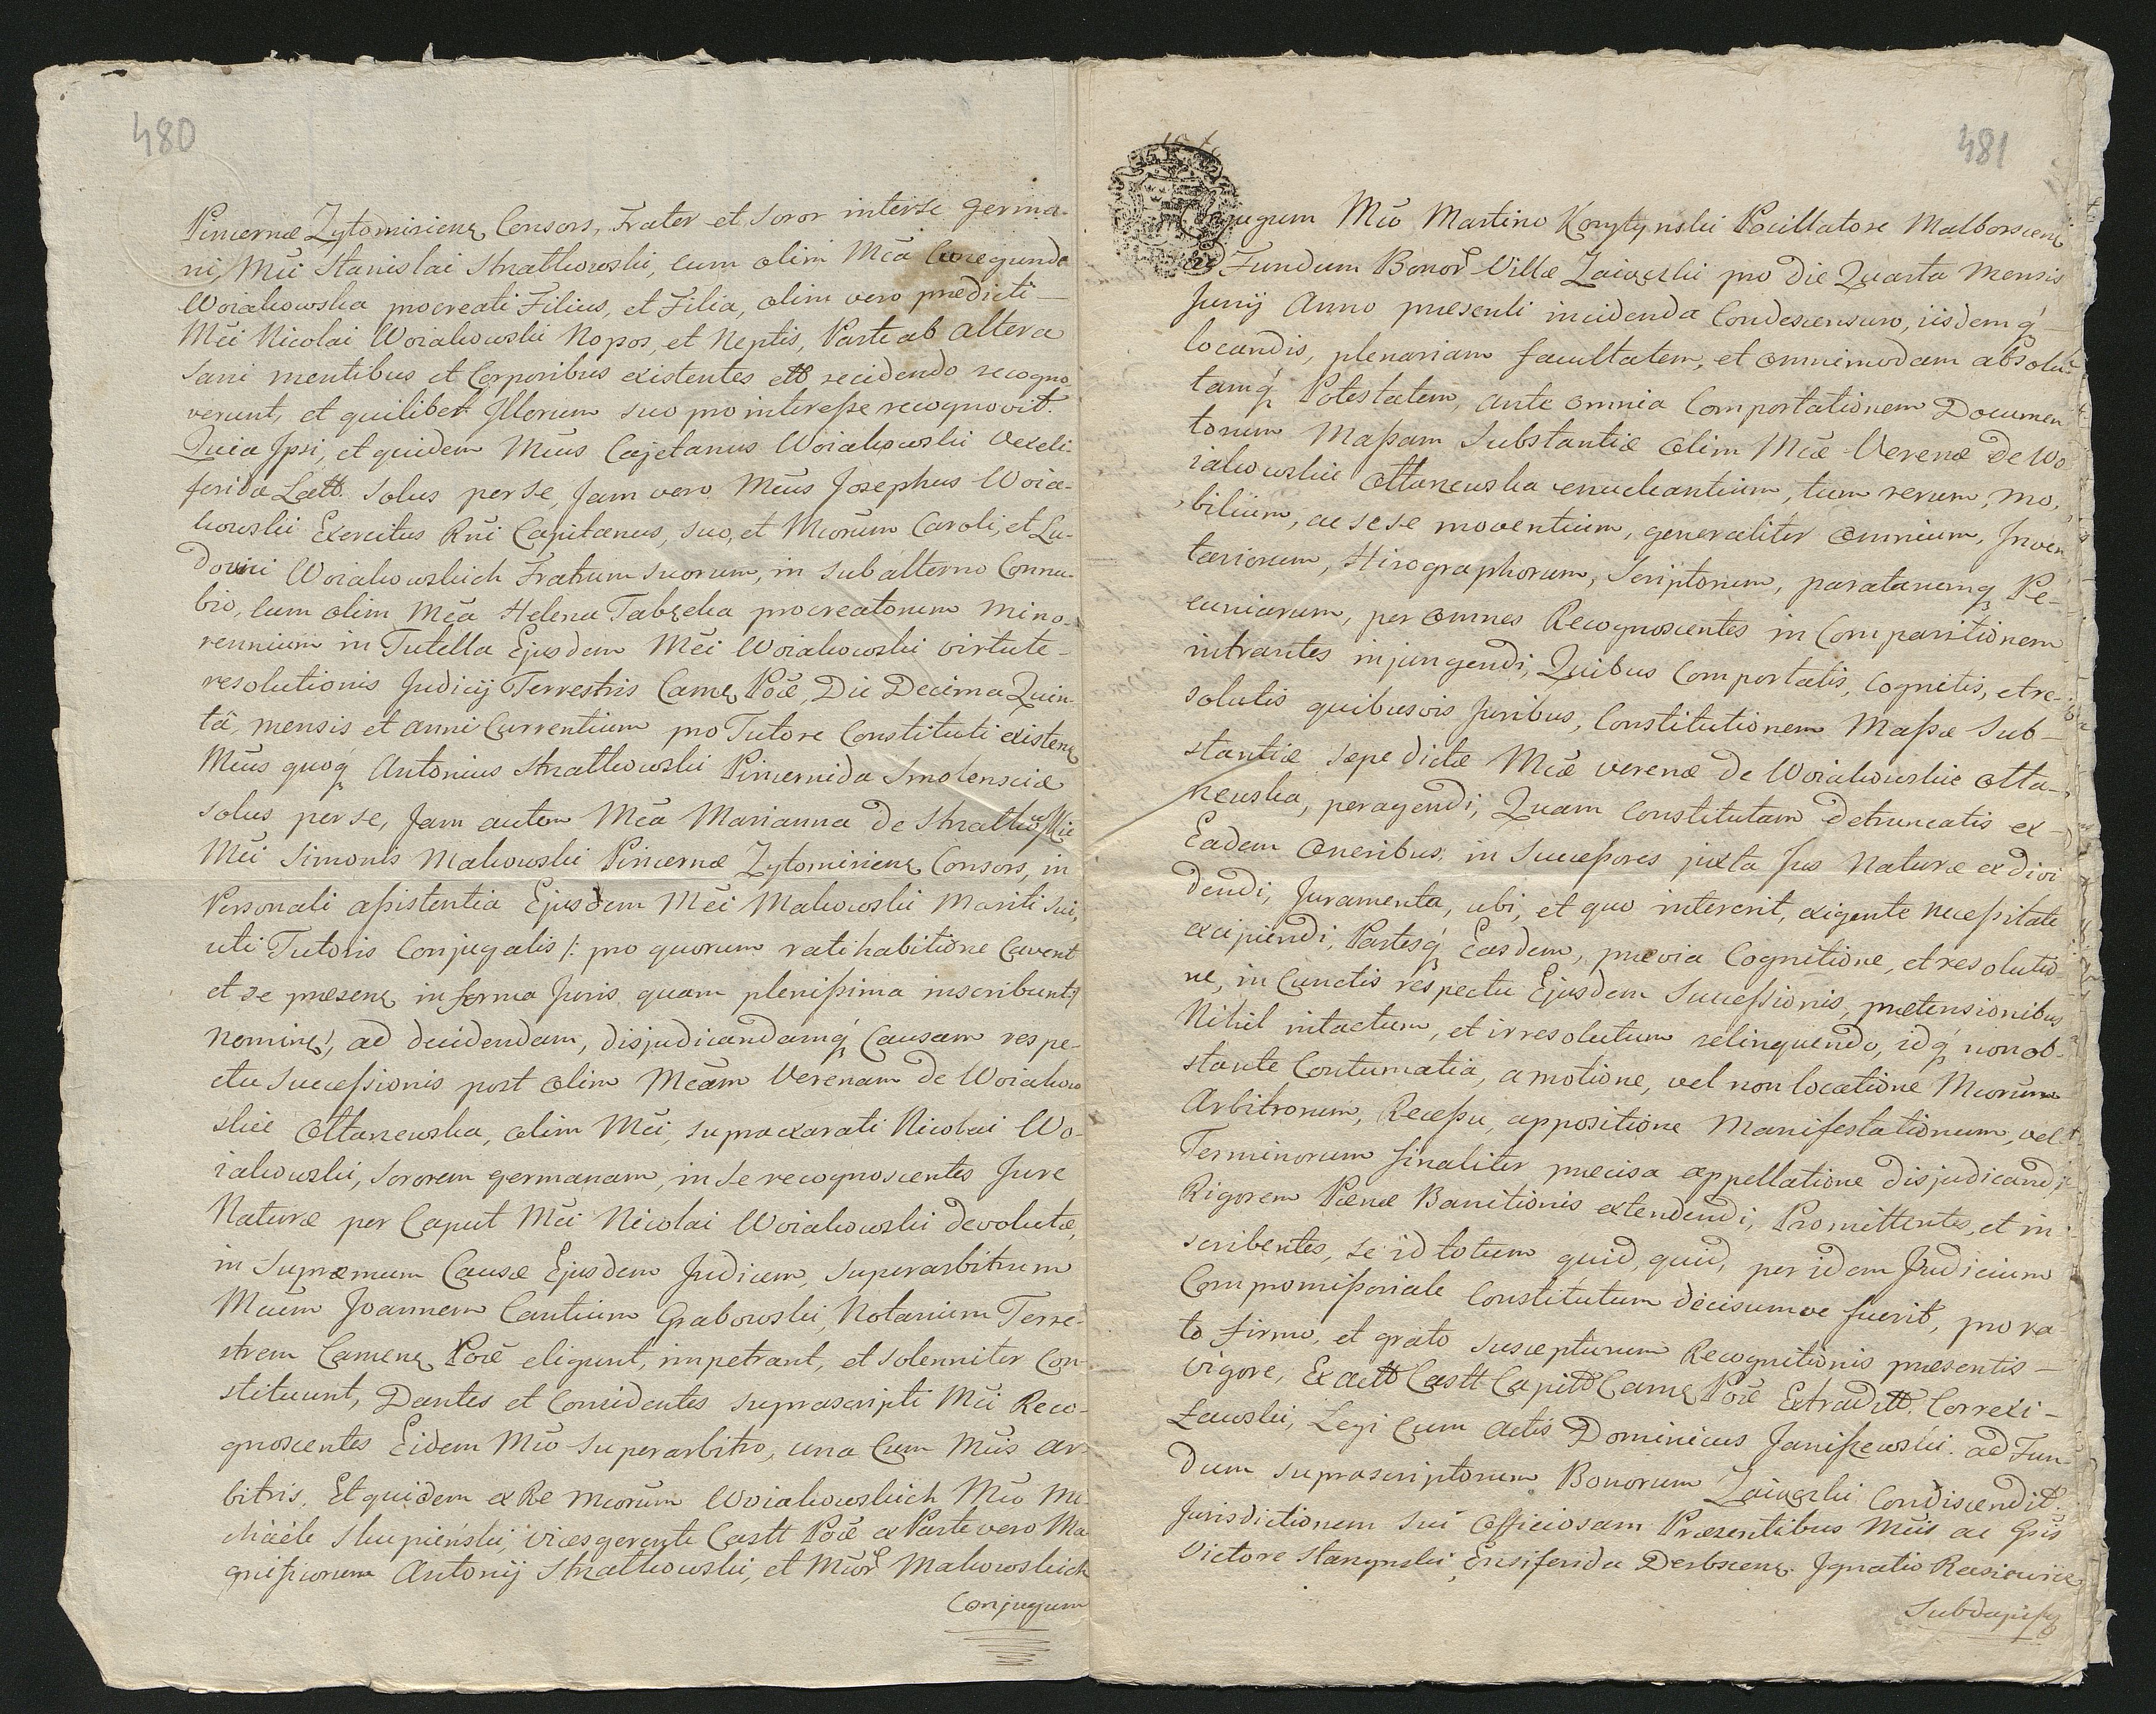 480
Pincernæ Zytomiriens Consors, Frater et Soror interse germa-
ni, Mci Stanislai Strzałkowski, cum olim Mca Cunegunda
Woiakowska procreati Filius, et Filia, olim vero prædicti
Mci Nicolai Woiakowski Nepos, et Neptis, Parte ab altera
sani mentibus et Corporibus existentes ett recidendo recogno-
verunt, et quilibet Illorum suo pro interesse recognovit.
Quia Ipsi, et quidem Mcus Cajetanus Woiakowski Vexeli-
ferida Latt. solus per se, Jam vero Mcus Josephus Woia-
kowski Exercitus Rni Capitaneus, suo, et Mcorum Caroli, et Lu-
dovici Woiakowskich Fratrum suorum, in subalterno Connu-
bio, cum olim Mca Helena Tabęcka procreatorum mino-
rennium in Tutella Ejusdem Mci Woiakowski virtute
resolutionis Judicij Terrestris Camen Poæ, Die Decima Quin-
tâ, mensis et anni Currentium pro Tutore Constituti existens
Mcus quoq Antonius Strzałkowski Pincernida Smolensciæ
solus per se, Jam autem Mca Marianna de Strzałkowskie
Mci Simonis Makowski Pincernæ Zytomiriens Consors, in
Personali assistentia Ejusdem Mci Makowski Mariti sui,
uti Tutoris Conjugalis /: pro quorum ratihabitione Cavent
et se præsens in forma Juris quam plenissima inscribunt :/
nomine, ad decidendam, disjudicandamq Causam respe-
ctu Successionis post olim Mcam Verenam de Woiakow
skie Ottanewska, olim Mci, supraexarati Nicolai Wo-
iakowski, sororem germanam, in se recognoscentes Jure
Naturæ per Caput Mci Nicolai Woiakowski devolutæ,
in Supræmum Causæ Ejusdem Judicem, Superarbitrum
Mcum Joannem Cantium Grabowski, Notarium Terre-
strem Camens Poæ eligunt, impetrant, et solenniter Con-
stituunt, Dantes et Concidentes suprascripti Mci Reco-
gnoscentes Eidem Mco Superarbitro, una Cum Mcis Ar-
bitris, Et quidem ex Re Mcorum Woiakowskich Mco Mi-
chaele Słupieński, Vicesgerente Castt Poæ ex Parte vero Ma
gnificorum Antonij Strzałkowski, et Mcor Makowskich
Conjugum
481
Conjugum Mco Martino Korytynski Pocillatore Malborscens
ad Fundum Bonor Villæ Zaiączki pro die Quarta Mensis
Junij Anno præsenti incidenda Condescensuro, iisdemq
locandis, plenariam facultatem, et omnimodam absolu-
tamq Potestatem, ante omnia Comportationem Documen
torum Massam Substantiæ olim Mcæ Verenæ de Wo
iakowskie Ottanewska enucleantium, tum rerum, mo-
bilium, ac sese moventium, generaliter omnium, Inven
tariorum, Hirographorum, Scriptorum, paratarumq Pe-
cuniarum, per omnes Recognoscentes in Comparitionem
intrantes injungendi, Quibus Comportatis, Cognitis, et re-
solutis quibusvis Juribus, Constitutionem Massæ Sub-
stantiæ sæpe dictæ Mcæ Verenæ de Woiakowskie Otta-
newska, peragendi, Quam Constitutam detruncatis ex
Eadem oneribus, in Successores juxta Jus Naturæ exdivi
dendi, Juramenta, ubi, et quo intererit, exigente necessitate
excipiendi, Partesq Easdem, prævia Cognitione, et resolutio
ne, in Cunctis respectu Ejusdem Successionis, prætensionibus
Nihil intactum, et irresolutum relinquendo, idq non ob-
stante Contumatia, amotione, vel non locatione Mcorum
Arbitrorum, Recessu, appositione Manifestationum, vel
Terminorum finaliter præcisa appellatione disjudicandi,
Rigorem Pœnæ Banitionis extendendi, Promittentes, et in
scribentes, se id totum quid, quid, per idem Judicium
Compromissoriale Constitutum decisumve fuerit, pro ra
to firmo, et grato suscepturum Recognitionis præsentis
vigore, Ex actt Castt Capitt Came Poæ Extraditt. Correxi
Ławski, Legi Cum Actis Dominicus Janiszewski. ad Fun-
dum suprascriptorum Bonorum Zaiączki Condiscendit.
Jurisdictionem sui Officiosam Præsentibus Mcis ac Gsis
Victore Starzynski, Ensiferida Derbscens. Ignatio Rasiewicz
Subdapifer